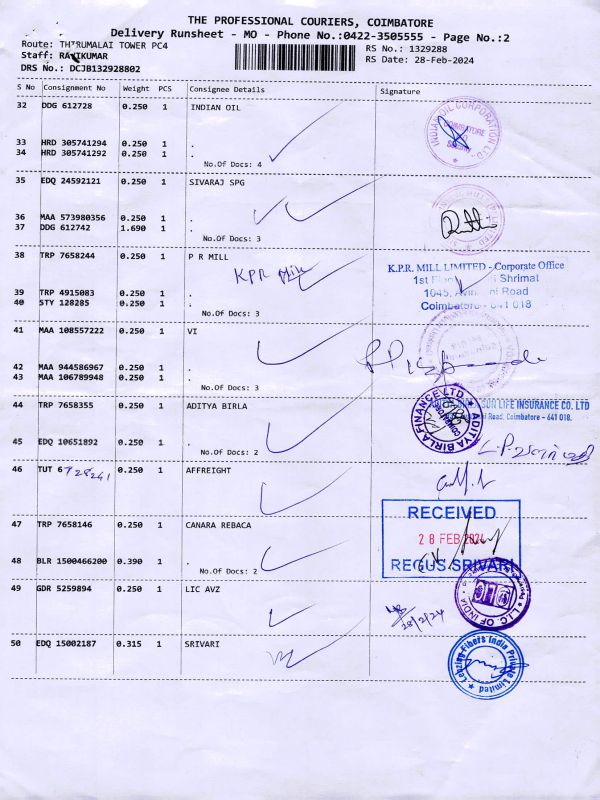 THE PROFESSIONAL COURIERS, COIMBATORE
Delivery Runsheet - MO - Phone No.:0422-3505555 - Page No.:2
Route: THIRUMALAI TOWER PC4
RS No.: 1329288
Staff: RAVIKUMAR
RS Date: 28-Feb-2024
DRS No.: DCJB132928802
S No Consignment No Weight PCS Consignee Details Signature
32 DDG 612728 0.250 1 INDIAN OIL
INDIAN OIL CORPORATION LTD.
COIMBATORE
33 HRD 305741294 0.250 1 .
34 HRD 305741292 0.250 1 .
No.Of Docs: 4
35 EDQ 24592121 0.250 1 SIVARAJ SPG
36 MAA 573980356 0.250 1 .
37 DDG 612742 1.690 1 .
No.Of Docs: 3
38 TRP 7658244 0.250 1 P R MILL
KPR Mill
K.P.R. MILL LIMITED - Corporate Office
1st Floor Shrimat
1045, Avinashi Road
Coimbatore - 641 018
39 TRP 4915083 0.250 1 .
40 STY 128285 0.250 1 .
No.Of Docs: 3
41 MAA 108557222 0.250 1 VI
42 MAA 944586967 0.250 1 .
43 MAA 106789948 0.250 1 .
No.Of Docs: 3
44 TRP 7658355 0.250 1 ADITYA BIRLA
ADITYA BIRLA FINANCE LTD
SUN LIFE INSURANCE CO. LTD
Road, Coimbatore - 641 018.
45 EDQ 10651892 0.250 1 .
No.Of Docs: 2
46 TUT 6728241 0.250 1 AFFREIGHT
RECEIVED
28 FEB 2024
REGUS SRIVARI
47 TRP 7658146 0.250 1 CANARA REBACA
48 BLR 1500466200 0.390 1 .
No.Of Docs: 2
49 GDR 5259894 0.250 1 LIC AVZ
L.I.C. OF INDIA
28/2/24
50 EDQ 15002187 0.315 1 SRIVARI
Lenzing Fibers India Private Limited